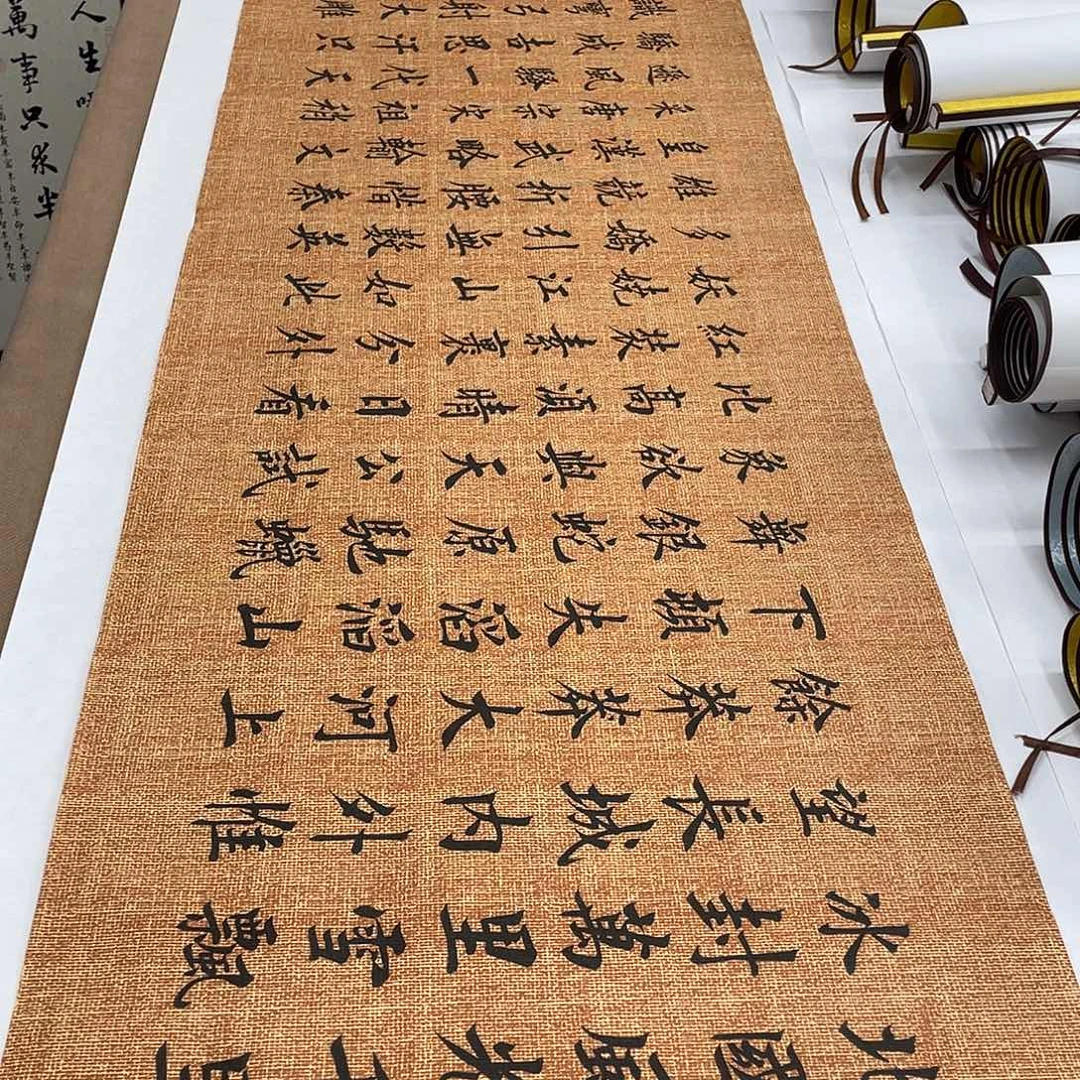 北國風光千里
冰封萬里雪飄
望長城內外惟
餘莽莽大河上
下頓失滔滔山
舞銀蛇原馳蠟
象欲與天公試
比高須晴日看
紅裝素裹分外
妖嬈江山如此
多嬌引無數英
雄競折腰惜秦
皇漢武略輸文
采唐宗宋祖稍
遜風騷一代天
驕成吉思汗只
識彎弓射大雕
人生
萬事只求半